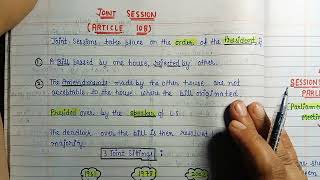 JOINT SESSION
(ARTICLE 108)
Joint Sessions take place on the order of the President if
① A Bill passed by one house, rejected by other.
② The Amendments made by the other house are not
acceptable to the house where the Bill originated.
Presided over by the speaker of LS.
The deadlock over the bill is then resolved
majority
3 Joint Sittings
1961
1978
SESSIONS
PARL
Parliamen
meetin